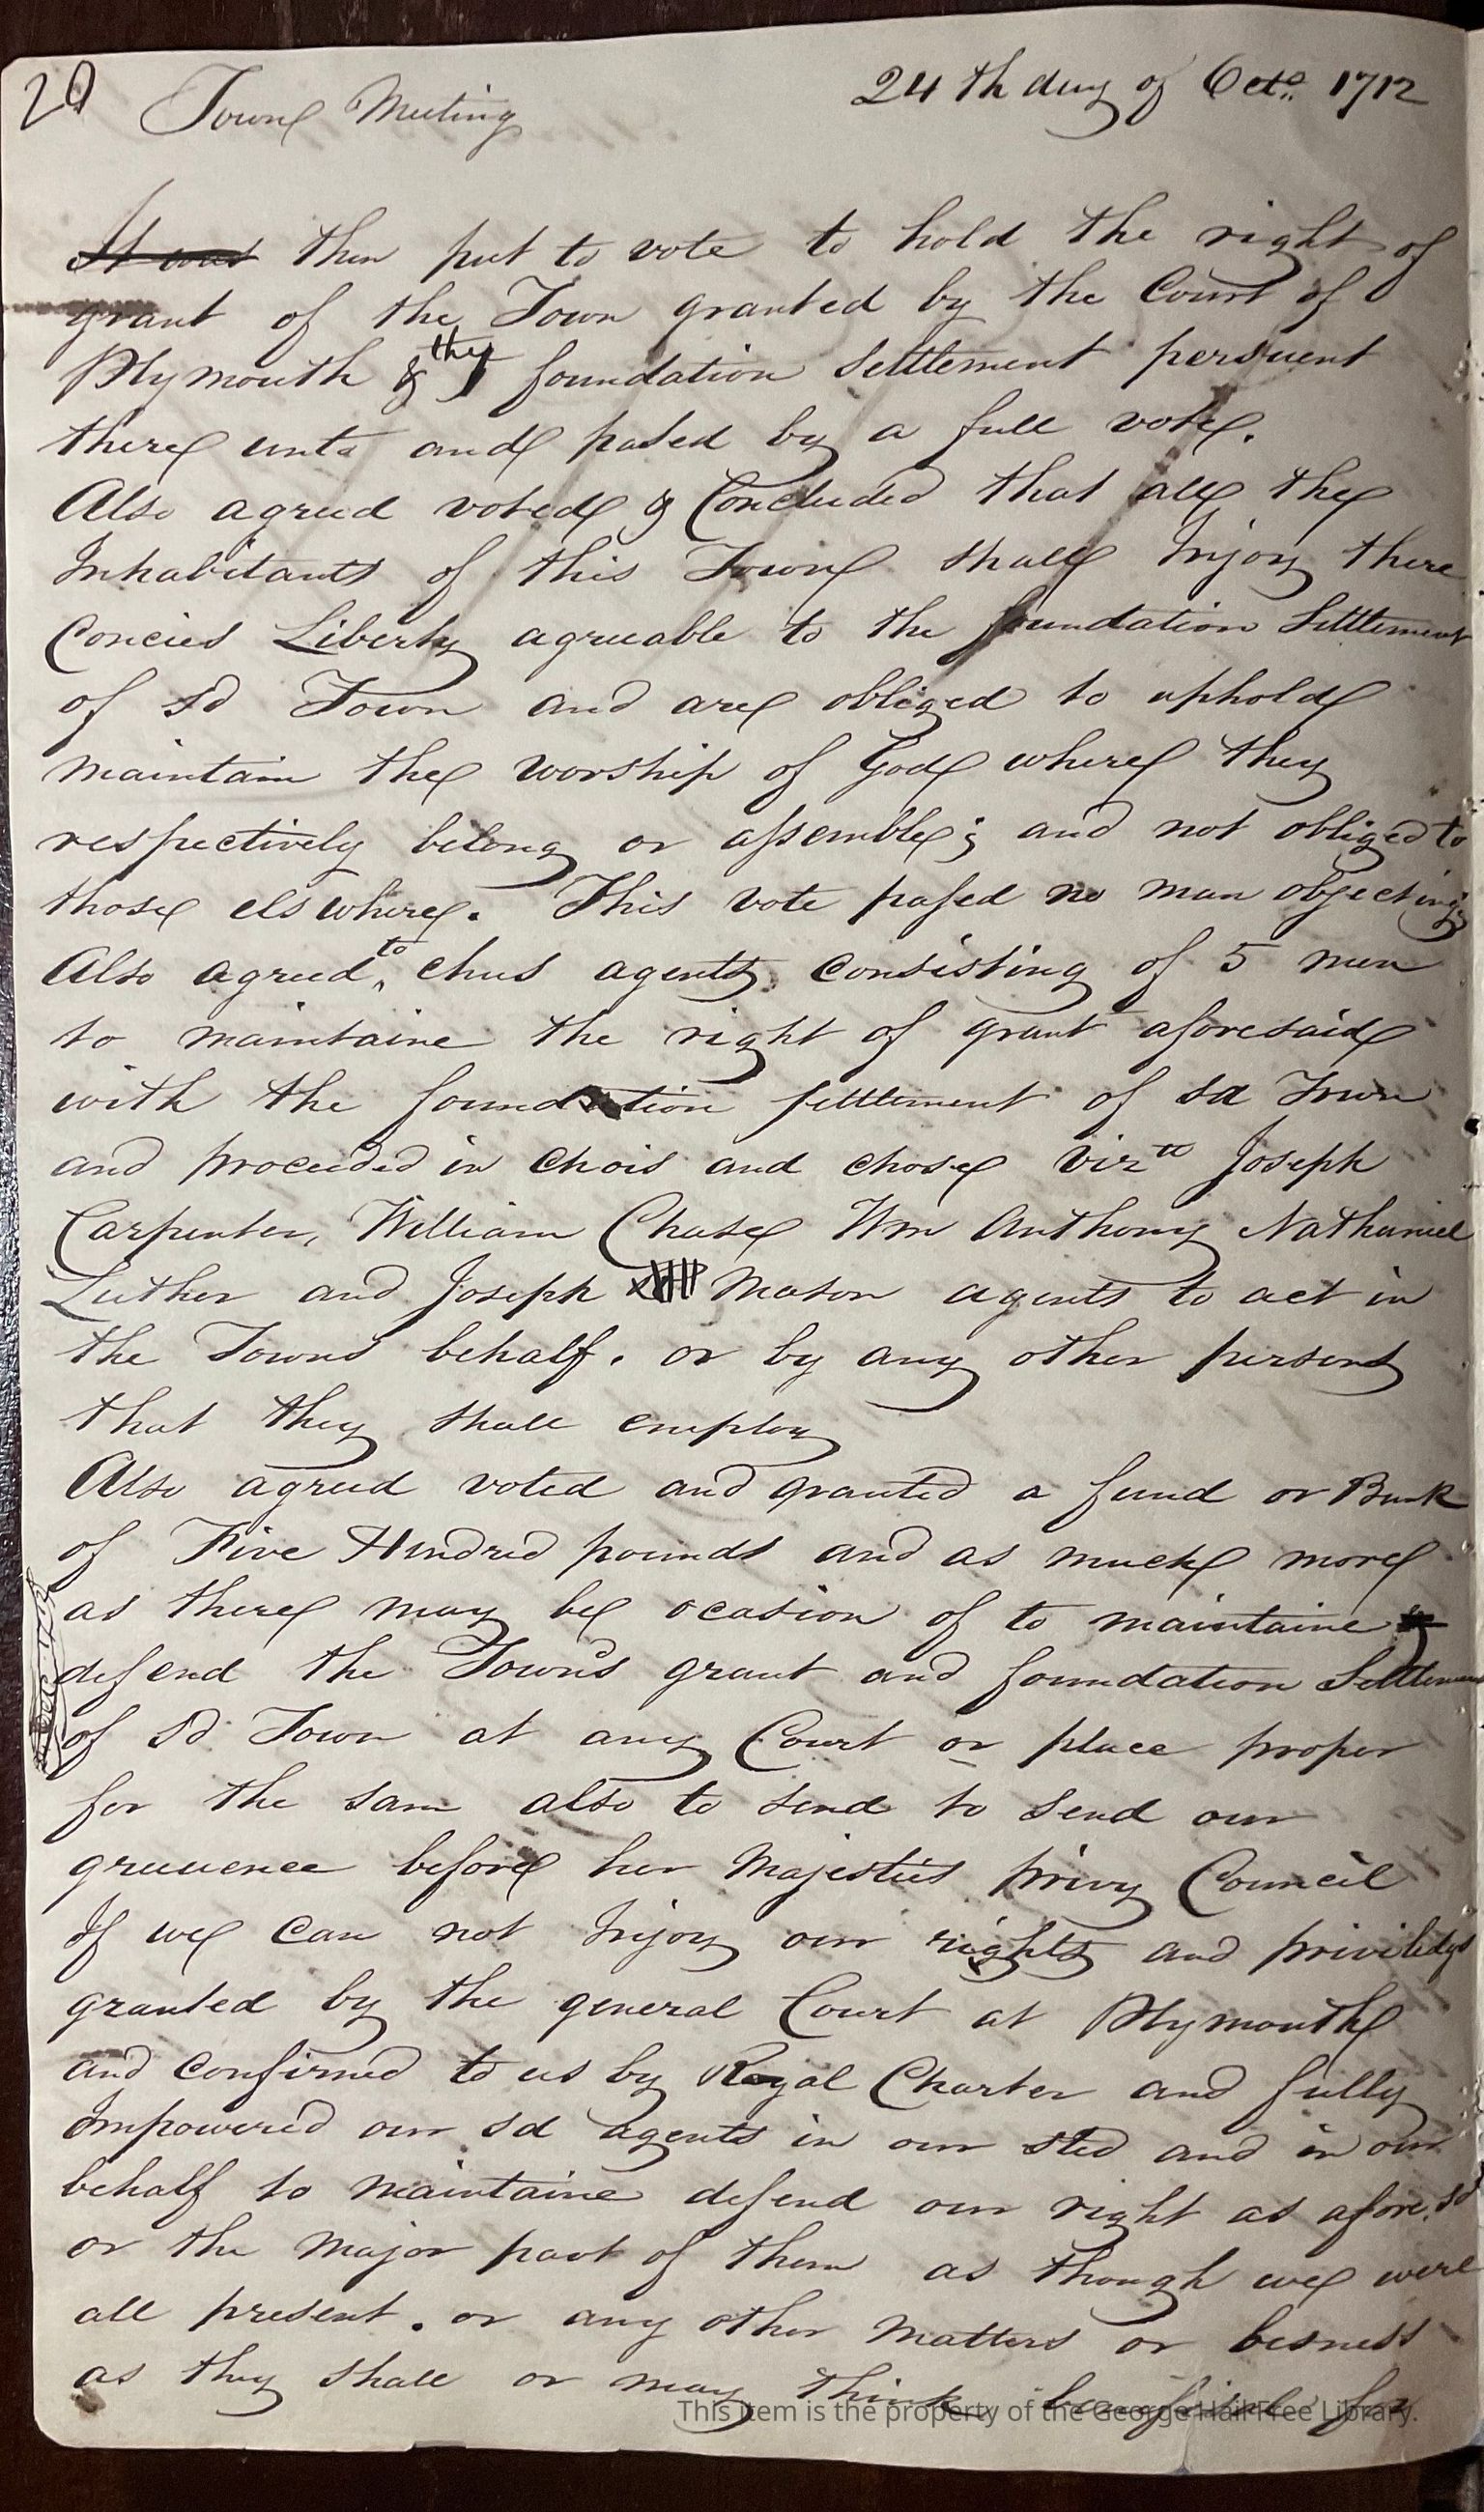 20 Town Meeting 24th day of Octo. 1712
It was then put to vote to hold the right of
grant of the Town granted by the Court of
Plymouth & the foundation Settlement persuent
there unto and pased by a full vote.
Also agreed voted & Concluded that all the
Inhabitants of this Town shall Injoy there
Concies Liberty agreeable to the foundation Settlement
of sd Town and are obliged to uphold
maintain the worship of God where they
respectively belong or assemble; and not obliged to
those elswhere. This vote passed no man objecting
Also agreed to chus agents consisting of 5 men
to maintaine the right of grant aforesaid
with the foundation settlement of sd Town
and proceeded in chois and chose Vizt Joseph
Carpenter, William Chase Wm Anthony Nathaniel
Luther and Joseph Mason agents to act in
the Towns behalf. or by any other persons
that they shall employ
Also agreed voted and granted a fund or Bank
of Five Hundred pounds and as much more
as there may be ocasion of to maintaine &
defend the Town's grant and foundation Settlement
of sd Town at any Court or place proper
for the sam also to send to send our
greeuence before her Majesties privy Council
If we can not Injoy our rights and priviledgs
granted by the general Court at Plymouth
and confirmed to us by Royal Charter and fully
Impowered our sd agents in our sted and in our
behalf to maintaine defend our right as aforesd
or the Major part of them as though we were
all present. or any other matters or besness
as they shall or may think
This item is the property of the George Hail Free Library.